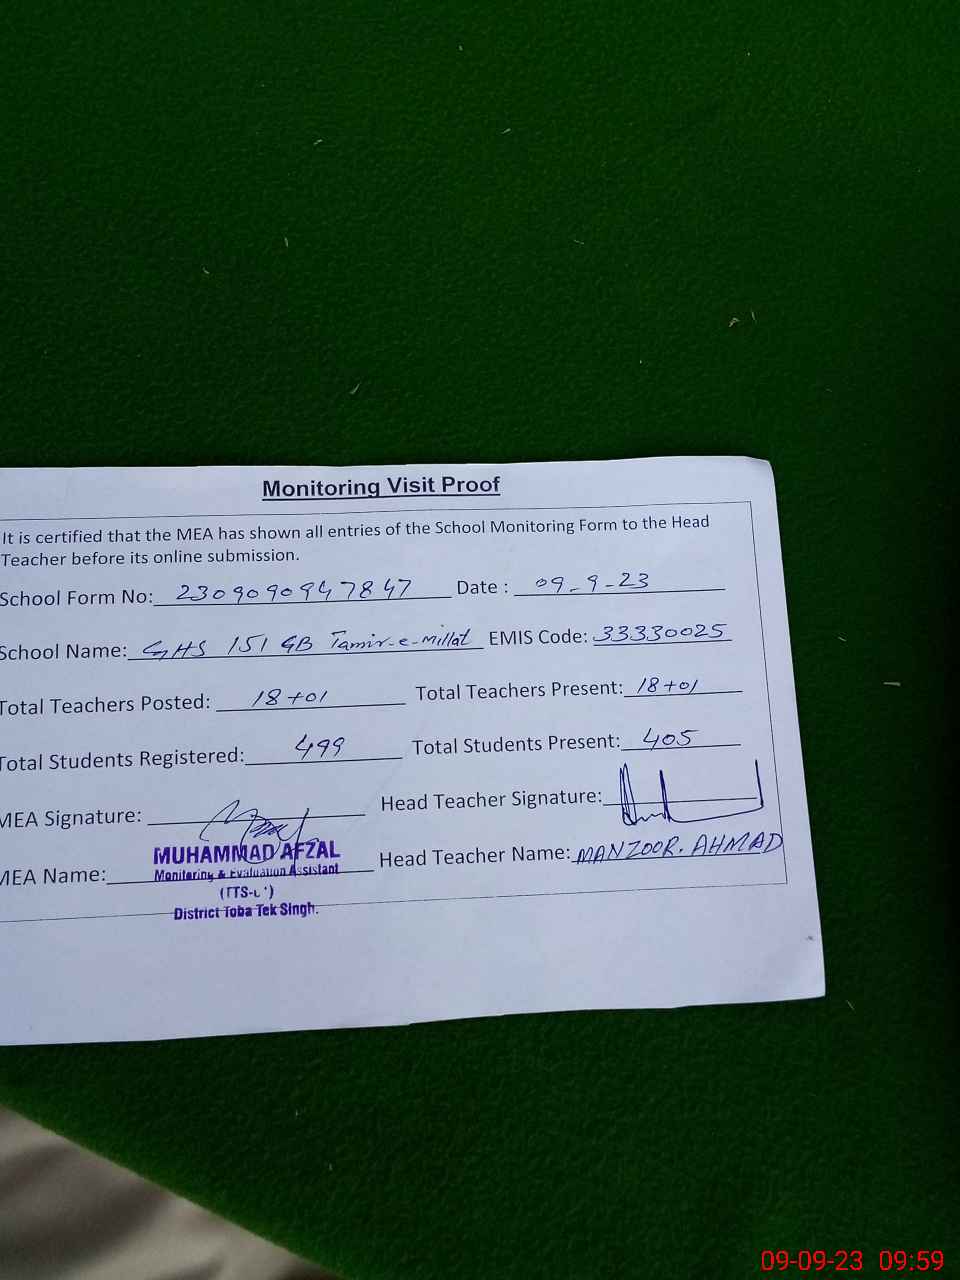 Monitoring Visit Proof
It is certified that the MEA has shown all entries of the School Monitoring Form to the Head
Teacher before its online submission.
School Form No: 230909094 7847 Date : 09-9-23
School Name: GHS 151 GB Tamir-e-millat EMIS Code: 33330025
Total Teachers Posted: 18+01 Total Teachers Present: 18+01
Total Students Registered: 499 Total Students Present: 405
MEA Signature: Head Teacher Signature:
MUHAMMAD AFZAL
MEA Name: Head Teacher Name: MANZOOR. AHMAD
Monitoring & Evaluation Assistant
District Toba Tek Singh.
09-09-23 09:59